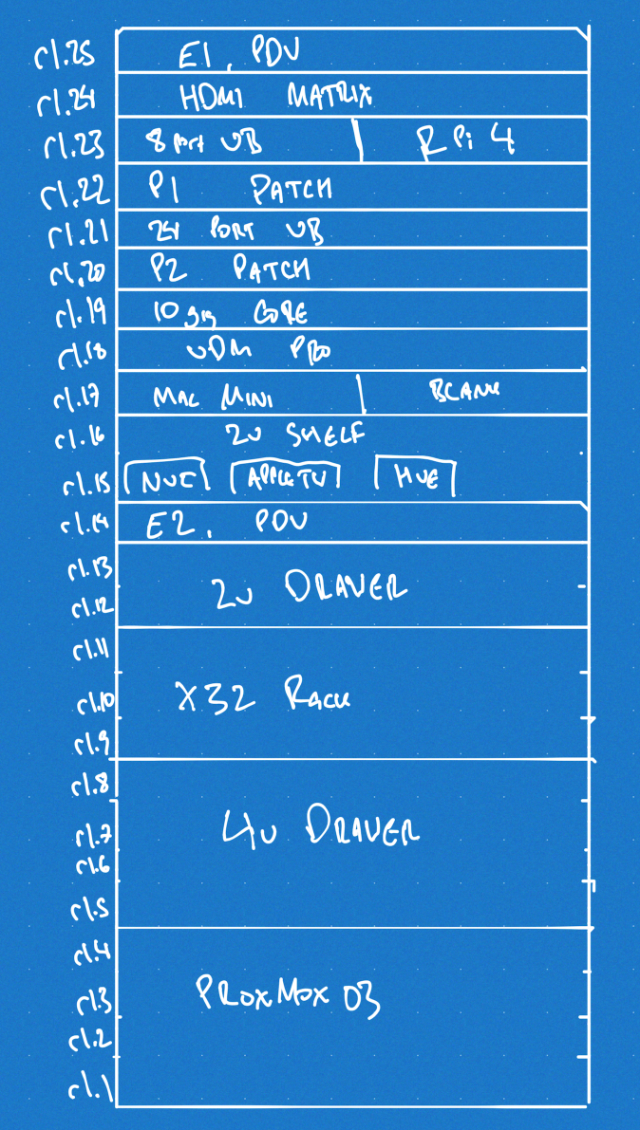 r1.25 E1. PDU
r1.24 HDMI MATRIX
r1.23 8 PORT UB | RPi 4
r1.22 P1 PATCH
r1.21 24 PORT UB
r1.20 P2 PATCH
r1.19 10 gig CORE
r1.18 UDM PRO
r1.17 MAC MINI | BLANK
r1.16 2U SHELF
r1.15 NUC APPLETV HUE
r1.14 E2. PDU
r1.13
2U DRAWER
r1.12
r1.11
r1.10 X32 RACK
r1.9
r1.8
r1.7 4U DRAWER
r1.6
r1.5
r1.4
r1.3 PROXMOX 03
r1.2
r1.1